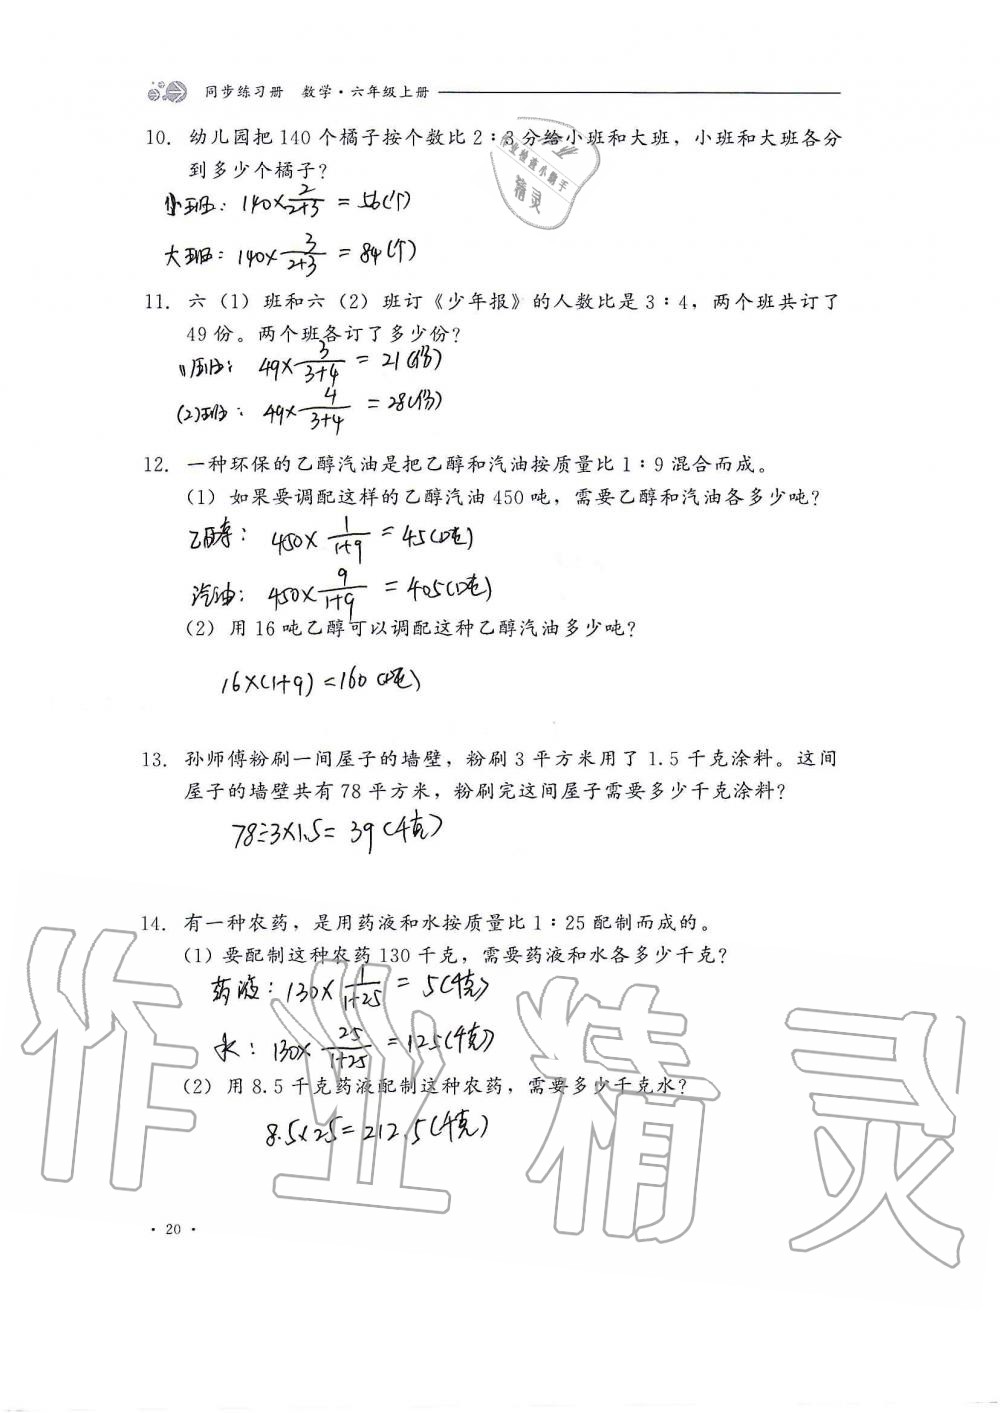 同步练习册 数学·六年级上册
10. 幼儿园把 140 个橘子按个数比 2∶3 分给小班和大班，小班和大班各分
到多少个橘子？
作业检查小助手
精灵
小班：140×2/(2+3)=56(个)
大班：140×3/(2+3)=84(个)
11. 六（1）班和六（2）班订《少年报》的人数比是 3∶4，两个班共订了
49 份。两个班各订了多少份？
(1)班：49×3/(3+4)=21(份)
(2)班：49×4/(3+4)=28(份)
12. 一种环保的乙醇汽油是把乙醇和汽油按质量比 1∶9 混合而成。
（1）如果要调配这样的乙醇汽油 450 吨，需要乙醇和汽油各多少吨？
乙醇：450×1/(1+9)=45(吨)
汽油：450×9/(1+9)=405(吨)
（2）用 16 吨乙醇可以调配这种乙醇汽油多少吨？
16×(1+9)=160(吨)
13. 孙师傅粉刷一间屋子的墙壁，粉刷 3 平方米用了 1.5 千克涂料。这间
屋子的墙壁共有 78 平方米，粉刷完这间屋子需要多少千克涂料？
78÷3×1.5=39(千克)
14. 有一种农药，是用药液和水按质量比 1∶25 配制而成的。
(1) 要配制这种农药 130 千克，需要药液和水各多少千克？
药液：130×1/(1+25)=5(千克)
水：130×25/(1+25)=125(千克)
(2) 用 8.5 千克药液配制这种农药，需要多少千克水？
8.5×25=212.5(千克)
作业精灵
· 20 ·